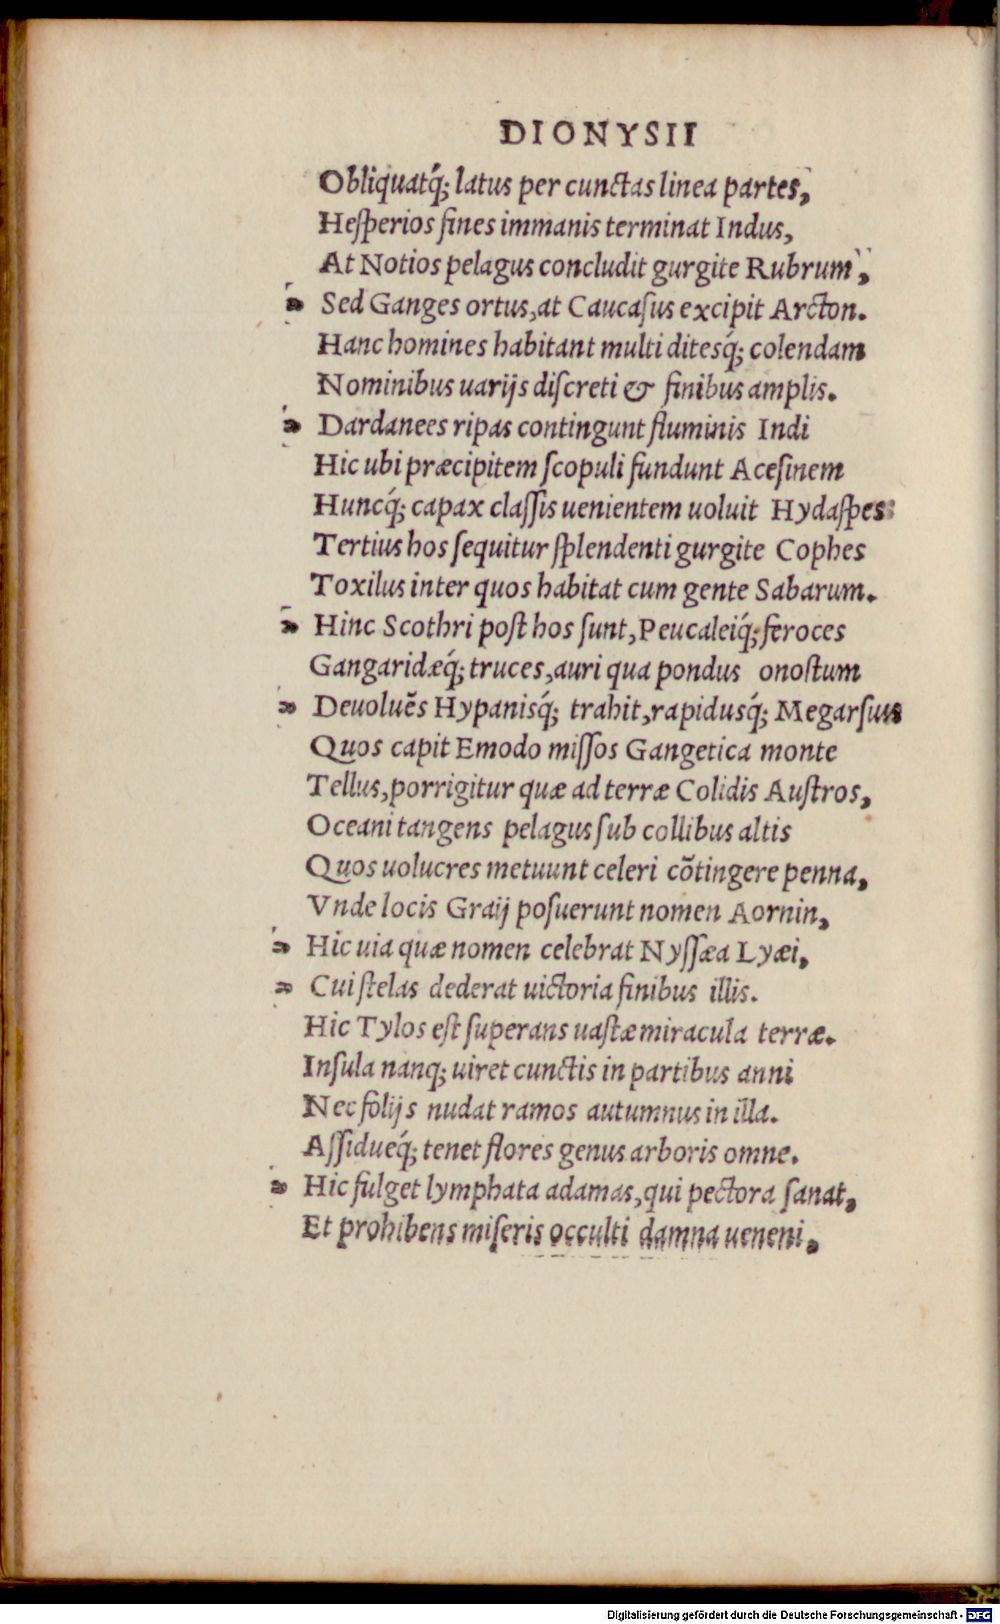 DIONYSII
Obliquatq́; latus per cunctas linea partes,
Heſperios fines immanis terminat Indus,
At Notios pelagus concludit gurgite Rubrum,
Sed Ganges ortus, at Caucaſus excipit Arcton.
Hanc homines habitant multi ditesq́; colendam
Nominibus uarijs diſcreti & finibus amplis.
Dardanees ripas contingunt fluminis Indi
Hic ubi præcipitem ſcopuli fundunt Aceſinem
Huncq́; capax claſſis uenientem uoluit Hydaſpes
Tertius hos ſequitur ſplendenti gurgite Cophes
Toxilus inter quos habitat cum gente Sabarum.
Hinc Scothri poſt hos ſunt, Peucaleiq́; feroces
Gangaridæq́; truces, auri qua pondus onoſtum
Deuoluēs Hypanisq́; trahit, rapidusq́; Megarſus
Quos capit Emodo miſſos Gangetica monte
Tellus, porrigitur quæ ad terræ Colidis Auſtros,
Oceani tangens pelagus ſub collibus altis
Quos uolucres metuunt celeri cōtingere penna,
Vnde locis Graij poſuerunt nomen Aornin,
Hic uia quæ nomen celebrat Nyſſæa Lyæi,
Cui ſtelas dederat uictoria finibus illis.
Hic Tylos eſt ſuperans uaſtæ miracula terræ.
Inſula nanq; uiret cunctis in partibus anni
Nec folijs nudat ramos autumnus in illa.
Aſſidueq́; tenet flores genus arboris omne.
Hic fulget lymphata adamas, qui pectora ſanat,
Et prohibens miſeris occulti damna ueneni,
Digitalisierung gefördert durch die Deutsche Forschungsgemeinschaft - DFG